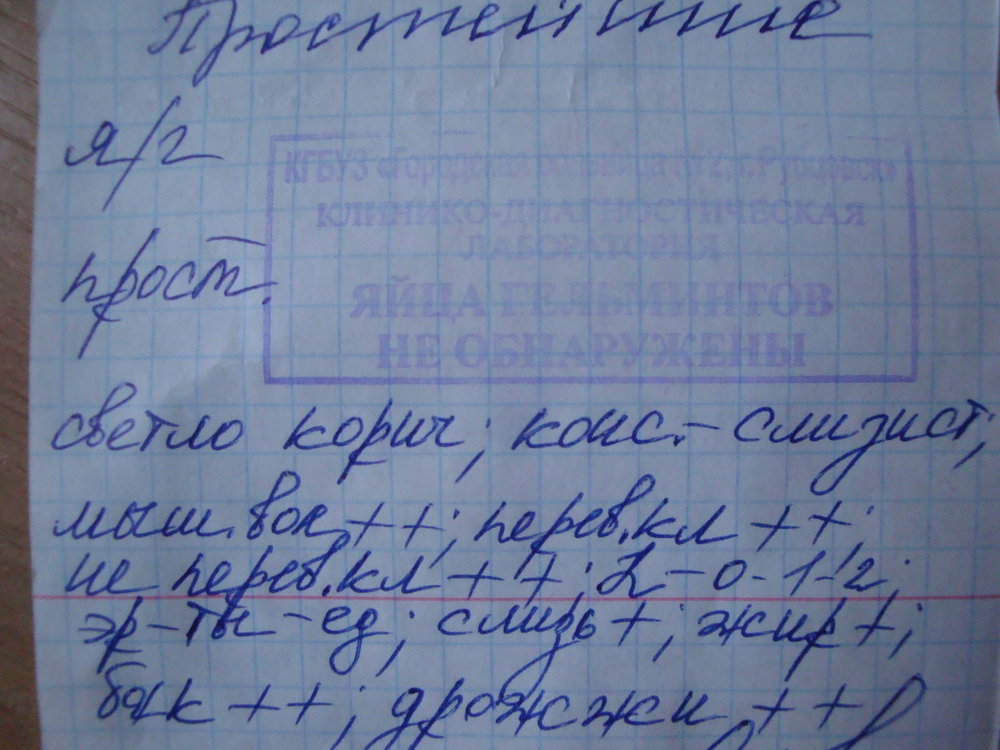 Простейшие
я/г
КГБУЗ «Городская больница №2, г.Рубцовск»
КЛИНИКО-ДИАГНОСТИЧЕСКАЯ
ЛАБОРАТОРИЯ
прост.
ЯЙЦА ГЕЛЬМИНТОВ
НЕ ОБНАРУЖЕНЫ
светло корич; конс.-слизист;
мыш.вол ++; перев.кл ++;
не перев.кл ++; L-0-1-2;
эр-ты-ед; слизь +; жир +;
бак ++; дрожжи ++